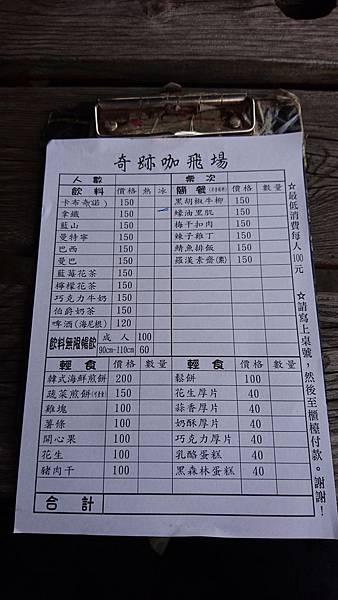 奇跡咖飛場
人數 桌次
飲料 價格 熱 冰 簡餐 價格 數量
卡布奇(諾) 150 黑胡椒牛柳 150
拿鐵 150 蠔油里肌 150
藍山 150 梅干扣肉 150
曼特寧 150 辣子雞丁 150
巴西 150 鯖魚排飯 150
曼巴 150 羅漢素齋(素) 150
藍莓花茶 150
檸檬花茶 150
巧克力牛奶 150
伯爵奶茶 150
啤酒(海尼根) 120
飲料無限暢飲 成人 100
90cm-110cm 60
輕食 價格 數量 輕食 價格 數量
韓式海鮮煎餅 200 鬆餅 100
蔬菜煎餅 150 花生厚片 40
雞塊 100 蒜香厚片 40
薯條 100 奶酥厚片 40
開心果 100 巧克力厚片 40
花生 100 乳酪蛋糕 40
豬肉干 100 黑森林蛋糕 40
合計
☆最低消費每人100元
☆請寫上桌號,然後至櫃檯付款。謝謝!